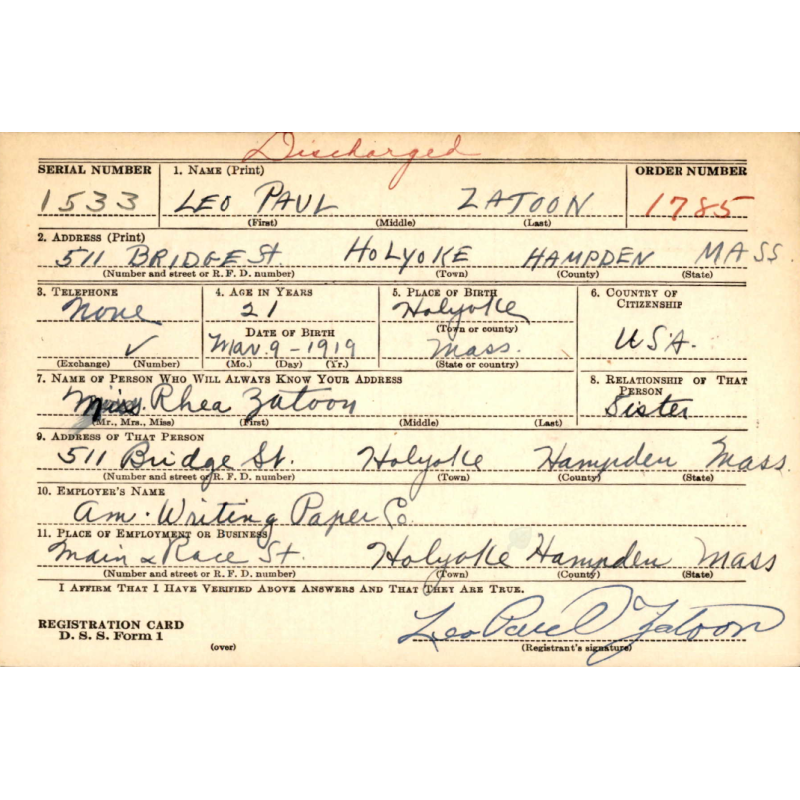 Discharged
SERIAL NUMBER 1. NAME (Print) ORDER NUMBER
1533 LEO PAUL ZATOON 1785
(First) (Middle) (Last)
2. ADDRESS (Print)
511 BRIDGE St. HOLYOKE HAMPDEN MASS.
(Number and street or R. F. D. number) (Town) (County) (State)
3. TELEPHONE 4. AGE IN YEARS 5. PLACE OF BIRTH 6. COUNTRY OF CITIZENSHIP
None 21 Holyoke
DATE OF BIRTH (Town or county)
✓ Mar. 9 - 1919 Mass. USA.
(Exchange) (Number) (Mo.) (Day) (Yr.) (State or country)
7. NAME OF PERSON WHO WILL ALWAYS KNOW YOUR ADDRESS 8. RELATIONSHIP OF THAT PERSON
Miss. Rhea Zatoon Sister
(Mr., Mrs., Miss) (First) (Middle) (Last)
9. ADDRESS OF THAT PERSON
511 Bridge St. Holyoke Hampden Mass.
(Number and street or R. F. D. number) (Town) (County) (State)
10. EMPLOYER'S NAME
Am. Writing Paper Co.
11. PLACE OF EMPLOYMENT OR BUSINESS
Main & Race St. Holyoke Hampden Mass
(Number and street or R. F. D. number) (Town) (County) (State)
I AFFIRM THAT I HAVE VERIFIED ABOVE ANSWERS AND THAT THEY ARE TRUE.
REGISTRATION CARD
D. S. S. Form 1 Leo Paul Zatoon
(over) (Registrant's signature)